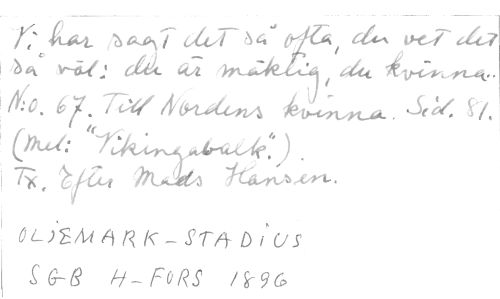 Vi har sagt det så ofta, du vet det
så väl: du är mäktig, du kvinna..
N:o. 67. Till Nordens kvinna. Sid. 81.
(Mel: "Vikingabalk".)
Tx. Efter Mads Hansen.
OLJEMARK-STADIUS
SGB H-FORS 1896